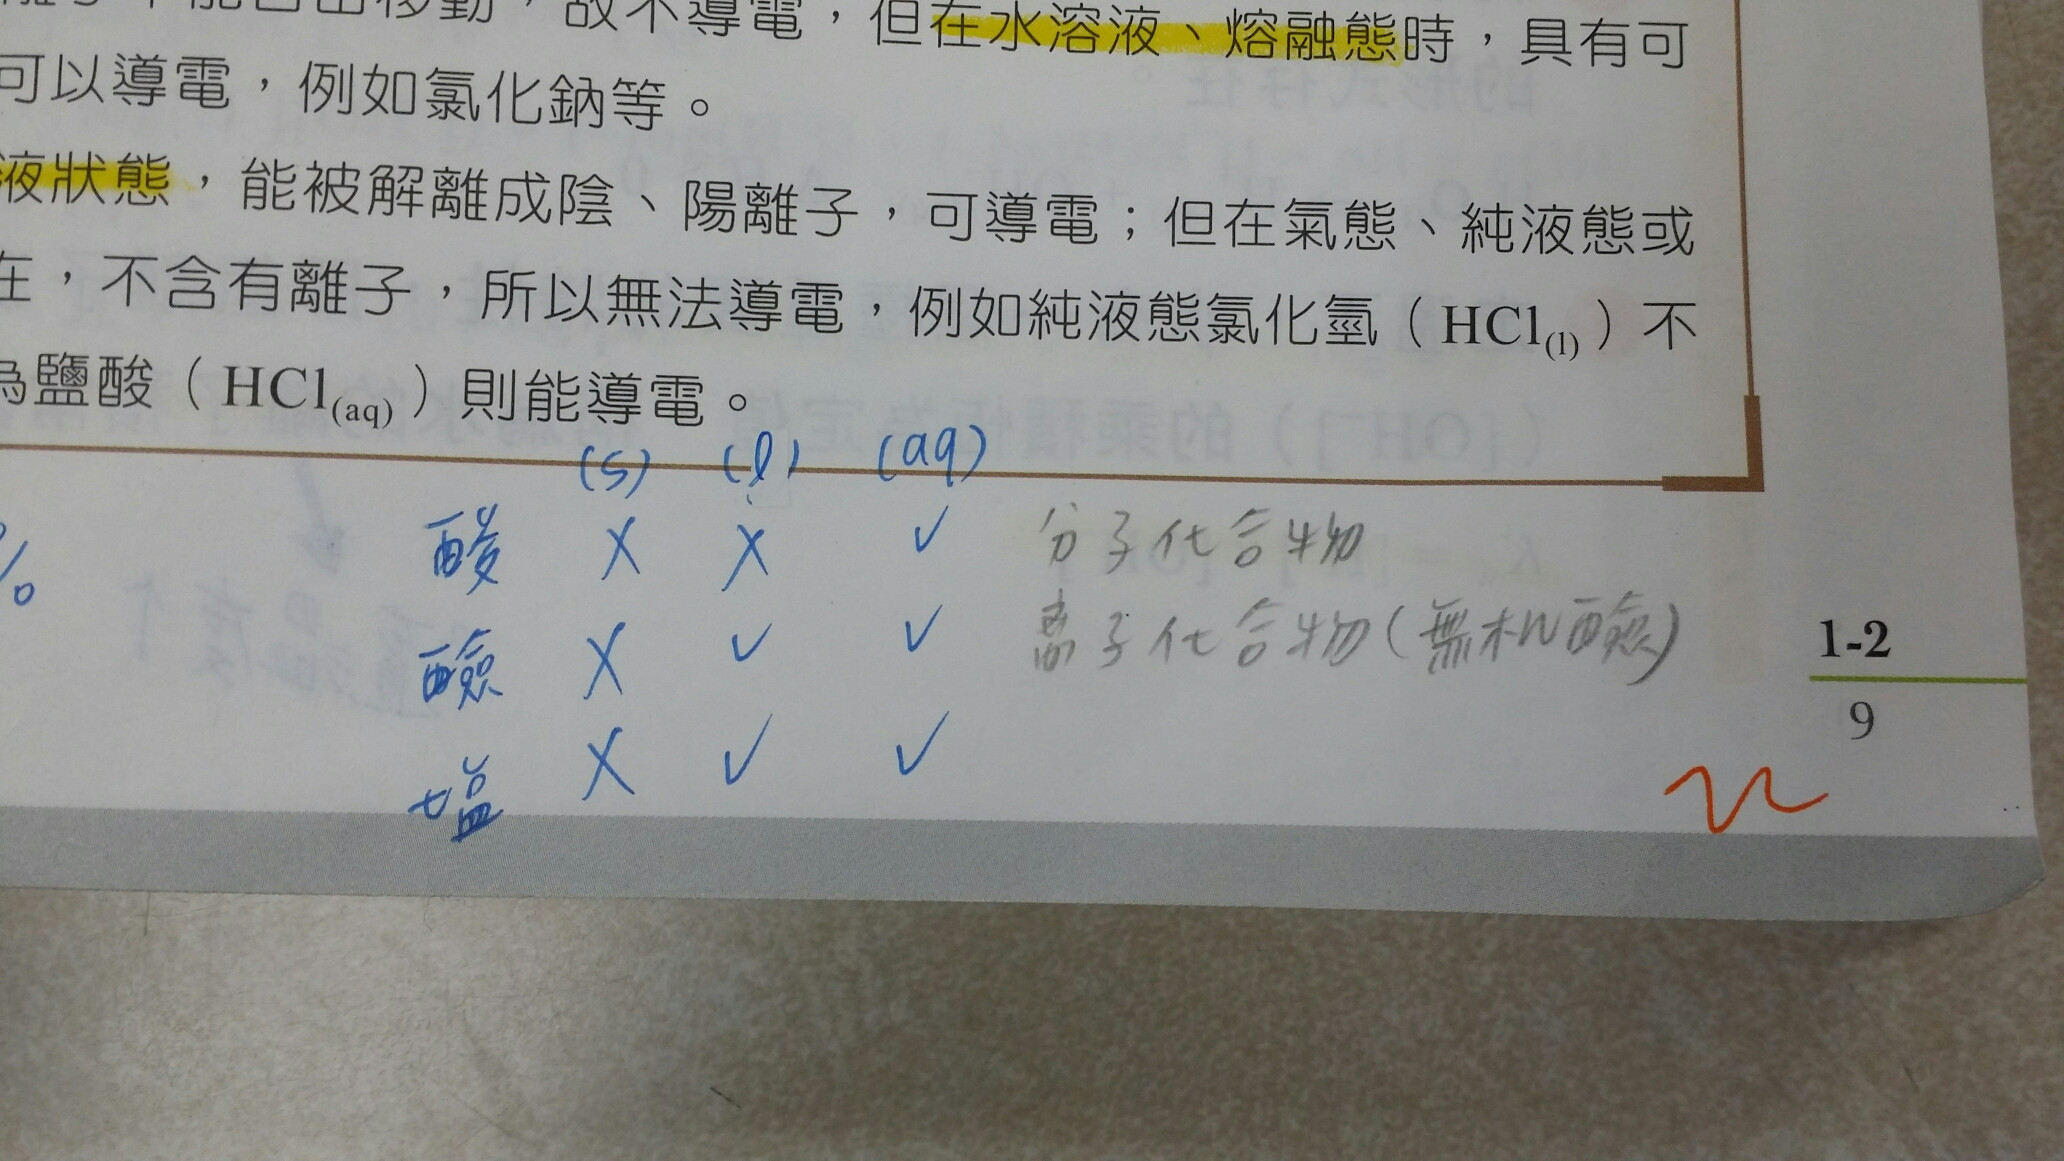 能自由移動，故不導電，但在水溶液、熔融態時，具有可
可以導電，例如氯化鈉等。
液狀態，能被解離成陰、陽離子，可導電；但在氣態、純液態或
在，不含有離子，所以無法導電，例如純液態氯化氫（HCl(l)）不
為鹽酸（HCl(aq)）則能導電。
(s) (l) (aq)
%
酸 X X ✓ 分子化合物
鹼 X ✓ ✓ 离子化合物(無机鹼)
塩 X ✓ ✓
1-2
9